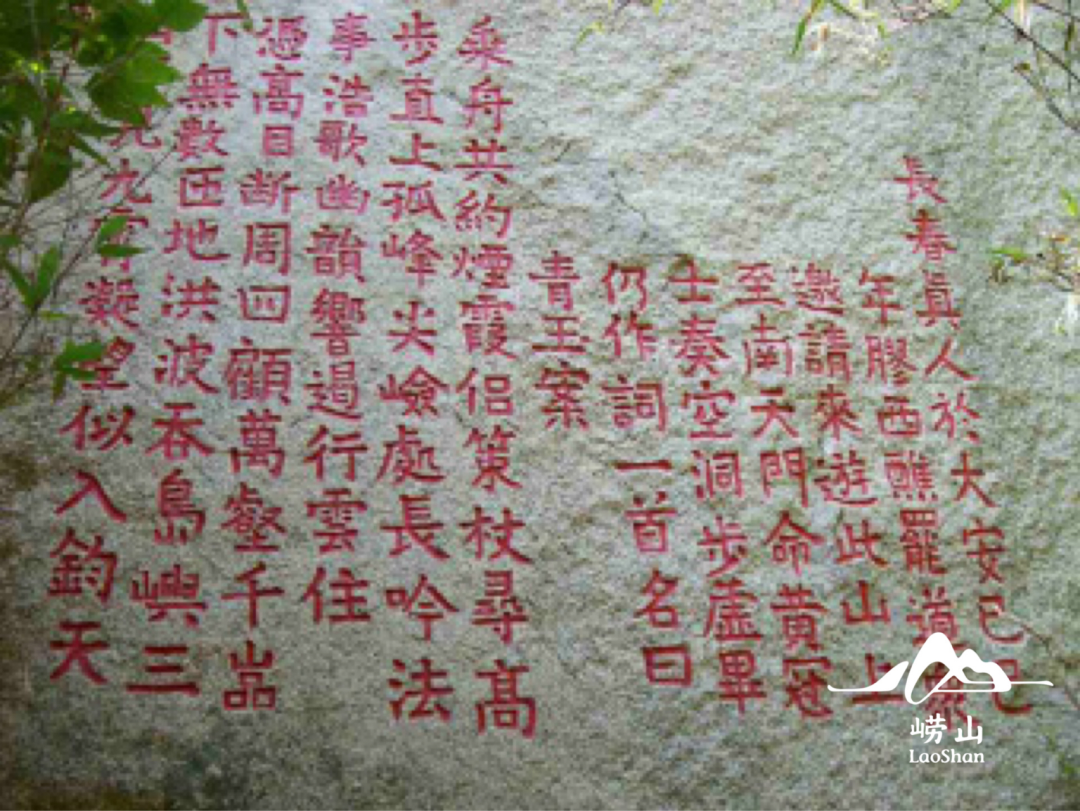 長春眞人於大安己巳
年膠西醮罷道衆
邀請來遊此山上
至南天門命黃冠
士奏空洞步虛畢
仍作詞一首名曰
青玉案
乘舟共約煙霞侶策杖尋高
步直上孤峰尖嶮處長吟法
事浩歌幽韻響遏行雲住
憑高目斷周四顧萬壑千嵓
下無數匝地洪波吞島嶼三
見九霄凝望似入鈞天
崂山
LaoShan